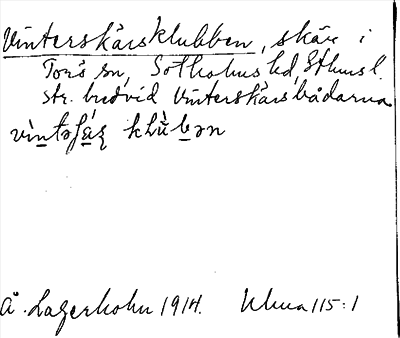 Vinterskärsklubben, skär i
Torö sn, Sotholms hd, Sthms l.
str. bredvid Vinterskärsbådarna
Å. Lagerholm 1914. Ulma 115:1